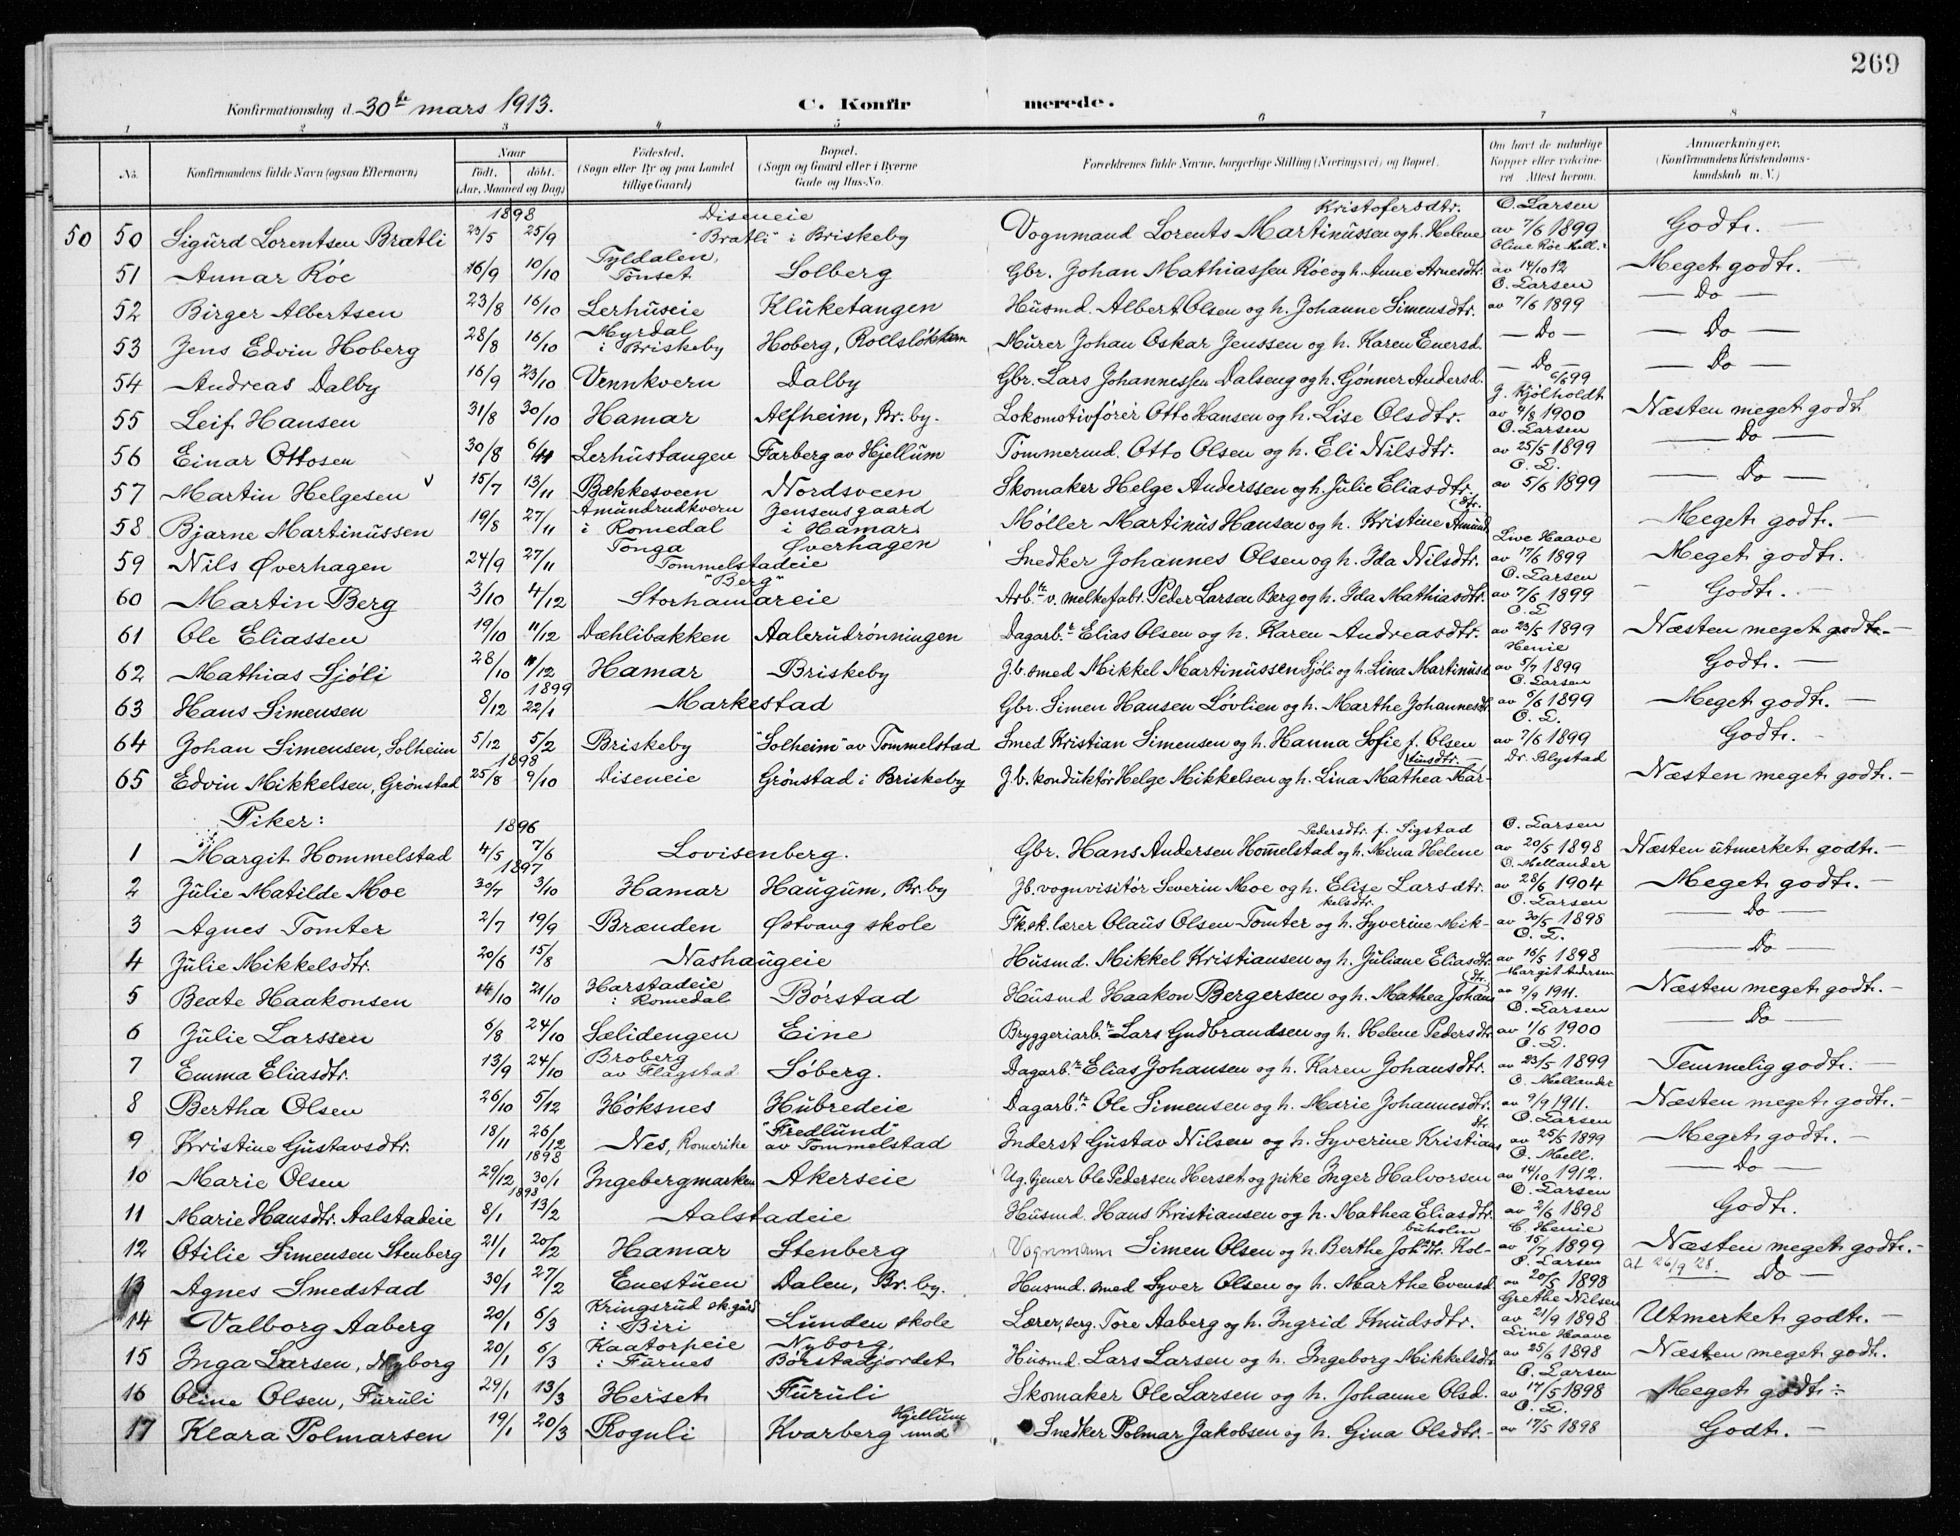 269
Konfirmationsdag d. 30te mars 1913. C. Konfirmerede.
1 2 3 4 5 6 7 8
No. Konfirmandens fulde Navn (ogsaa Efternavn) Naar født. døbt. (Aar, Maaned og Dag) Fødested. (Sogn eller By og paa Landet tillige Gaard) Bopæl. (Sogn og Gaard eller i Byerne Gade og Hus-No. Forældrenes fulde Navne, borgerlige Stilling (Næringsvei) og Bopæl. Om havt de naturlige Kopper eller vaccineret Attest herom. Anmærkninger. (Konfirmandens Kristendomskundskab m. V.)
1898 Diseneie Kristofersdtr. O. Larsen
50 50 Sigurd Lorentsen Bratli 23/5 25/9 "Bratli" i Briskeby Vognmand Lorents Martinussen og h. Helene av 7/6 1899 Godt. —
Tyldalen, Oline Røe Mell.
51 Annar Røe 16/9 10/10 Tønset Solberg Gbr. Johan Mathiassen Røe og h. Anne Arnesdtr. av 14/10 12 Meget godt. —
O. Larsen
52 Birger Albertsen 23/8 16/10 Lerhuseie Kluketangen Husmd. Albert Olsen og h. Johanne Simensdtr. av 7/6 1899 — Do —
53 Jens Edvin Hoberg 28/8 16/10 Myrdal i Briskeby Hoberg, Rollsløkken Murer Johan Oskar Jenssen og h. Karen Enersd. — Do — — Do —
54 Andreas Dalby 16/9 23/10 Vennkvern Dalby Gbr. Lars Johannessen Dalseng og h. Gønner Andersd. — Do — 6/6 99 — Do
J. Kjølholdt
55 Leif Hansen 31/8 30/10 Hamar Alfheim, Br. by. Lokomotivfører Otto Hansen og h. Lise Olsdtr. av 9/8 1900 Næsten meget godt
O. Larsen
56 Einar Ottosen 30/8 6/11 Lerhustangen Farberg av Hjellum Tømmermd. Otto Olsen og h. Eli Nilsdtr. av 25/5 1899 — Do —
O. L.
57 Martin Helgesen v 15/7 13/11 Bækkesveen Nordsveen Skomaker Helge Anderssen og h. Julie Eliasdtr. av 5/6 1899 — Do —
58 Bjarne Martinussen 19/8 27/11 Amundrudkvern i Romedal Jensensgaard i Hamar Møller Martinus Hansen og h. Kristine Amund dtr. Meget godt. —
Live Haave
59 Nils Øverhagen 24/9 27/11 Tonga Øverhagen Tommelstadeie Snedker Johannes Olsen og h. Ida Nilsdtr. av 17/6 1899 Meget godt.
"Berg" O. Larsen
60 Martin Berg 3/10 4/12 Storhamareie Arb.r v. melkefabr. Peder Larsen Berg og h. Ida Mathiasdtr. av 7/6 1899 Godt. —
O. L.
61 Ole Eliassen 19/10 11/12 Dæhlibakken Aalerudrønningen Dagarb.r Elias Olsen og h. Karen Andreasdtr. av 23/5 1899 Næsten meget godt. —
Henie
62 Mathias Sjøli 28/10 11/12 Hamar Briskeby J. b. smed Mikkel Martinussen Sjøli og h. Lina Martinusd. av 5/7 1899 Godt. —
1899 O. Larsen
63 Hans Simensen 8/12 22/1 Markestad Gbr. Simen Hansen Løvlien og h. Marthe Johannesdtr. av 8/6 1899 Meget godt. —
O. L.
64 Johan Simensen, Solheim 5/12 5/2 Briskeby "Solheim" av Tommelstad Smed Kristian Simensen og h. Hanna Sofie f. Olsen av 7/6 1899 Godt. —
1898 tinusdtr. — Dr. Blystad
65 Edvin Mikkelsen, Grønstad 25/8 9/10 Diseneie Grønstad i Briskeby J. b. konduktør Helge Mikkelsen og h. Lina Mathea Mar- Næsten meget godt. —
Piker:
1896 Pedersdtr. f. Sigstad O. Larsen
1 Margit Hommelstad 4/5 7/6 Lovisenberg. Gbr. Hans Andersen Hommelstad og h. Mina Helene av 20/5 1898 Næsten utmerket godt. —
1897 O. Mellander
2 Julie Matilde Moe 30/7 3/10 Hamar Haugum, Br. by Jb. vognvisitør Severin Moe og h. Elise Larsdtr. av 28/6 1904 Meget godt. —
kelsdtr. O. Larsen
3 Agnes Tomter 2/7 19/9 Brænden Østvang skole Fk. sk. lærer Olaus Olsen Tomter og h. Syverine Mik- av 30/5 1898 — Do —
O. L.
4 Julie Mikkelsdtr. 20/6 15/8 Nashaugeie Husmd. Mikkel Kristiansen og h. Juliane Eliasdtr. av 16/5 1898 — Do —
dtr. Margit Andersen
5 Beate Haakonsen 14/10 21/10 Harstadeie i Romedal Børstad Husmd Haakon Bergersen og h. Mathea Johans av 9/9 1911. Næsten meget godt. —
O. Larsen
6 Julie Larssen 6/8 24/10 Sælidengen Eine Bryggeriarb.r Lars Gudbrandsen og h. Helene Pedersdtr. av 1/6 1900 — Do —
O. L.
7 Emma Eliasdtr. 13/9 24/10 Broberg av Flagstad Søberg. Dagarb.r Elias Johansen og h. Karen Johansdtr. av 23/5 1899 Temmelig godt. —
O. Mellander
8 Bertha Olsen 26/10 5/12 Høksnes Hubredeie Dagarb.r Ole Simensen og h. Marie Johannesdtr. av 9/9 1911. Næsten meget godt. —
dtr. O. Larsen
9 Kristine Gustavsdtr. 18/11 26/12 Nes, Romerike "Fredlund" av Tommelstad Inderst Gustav Nilsen og h. Syverine Kristians av 25/5 1899 Meget godt. —
1898 O. Mell.
10 Marie Olsen 29/12 30/1 Ingebergmarken Akerseie Ug. tjener Ole Pedersen Herset og pike Inger Halvorsen av 14/10 1912. — Do —
1898 O. Larsen
11 Marie Hansdtr. Aalstadeie 8/1 13/2 Aalstadeie Husmd. Hans Kristiansen og h. Mathea Eliasdtr. av 2/6 1898 Godt.
buholm C. Henie
12 Otilie Simensen Stenberg 21/1 20/2 Hamar Stenberg Vognmann Simen Olsen og h. Berthe Johsdtr. Kol- av 15/7 1899 Næsten meget godt. —
O. Larsen at 26/9 28.
13 Agnes Smedstad 30/1 27/2 Enestuen Dalen, Br. by. Husmd. smed Syver Olsen og h. Marthe Evensd. av 20/5 1898 — Do —
Grethe Nilsen
14 Valborg Aaberg 20/1 6/3 Kringsrud sk. gård i Biri Lunden skole Lærer, serg. Tore Aaberg og h. Ingrid Knudsdtr. av 21/9 1898 Utmerket godt. —
Line Haave
15 Inga Larsen, Nyborg 20/1 6/3 Kaatorpeie i Furnes Nyborg, Børstadjordet Husmd. Lars Larsen og h. Ingeborg Mikkelsdtr. av 25/6 1898 Næsten meget godt.
O. Larsen
16 Oline Olsen, Furuli 29/1 13/3 Herset Furuli Skomaker Ole Larsen og h. Johanne Olsd. av 17/5 1898 Meget godt. —
O. L.
17 Klara Polmarsen 19/1 20/3 Roguli Kvarberg Hjellum und Snedker Polmar Jakobsen og h. Gina Olsdtr. — av 17/5 1898 Godt. —